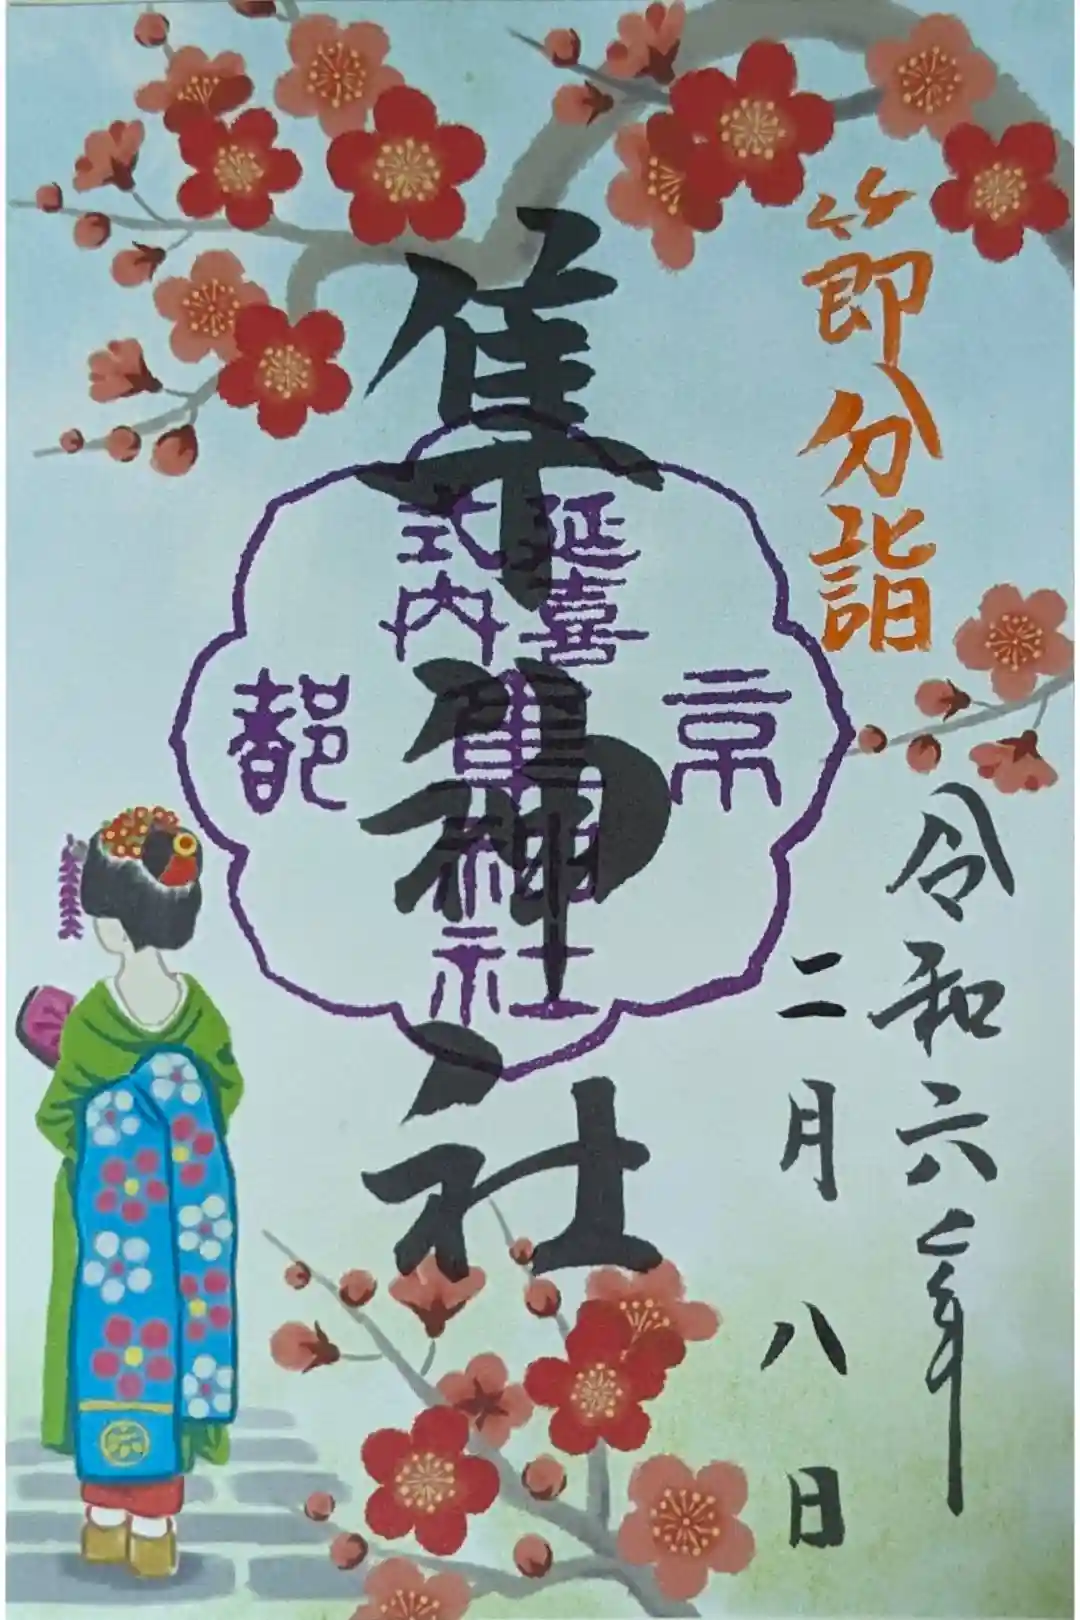 節分詣
令和六年
二月八日
隼神社
京都
延喜
式内
隼神社